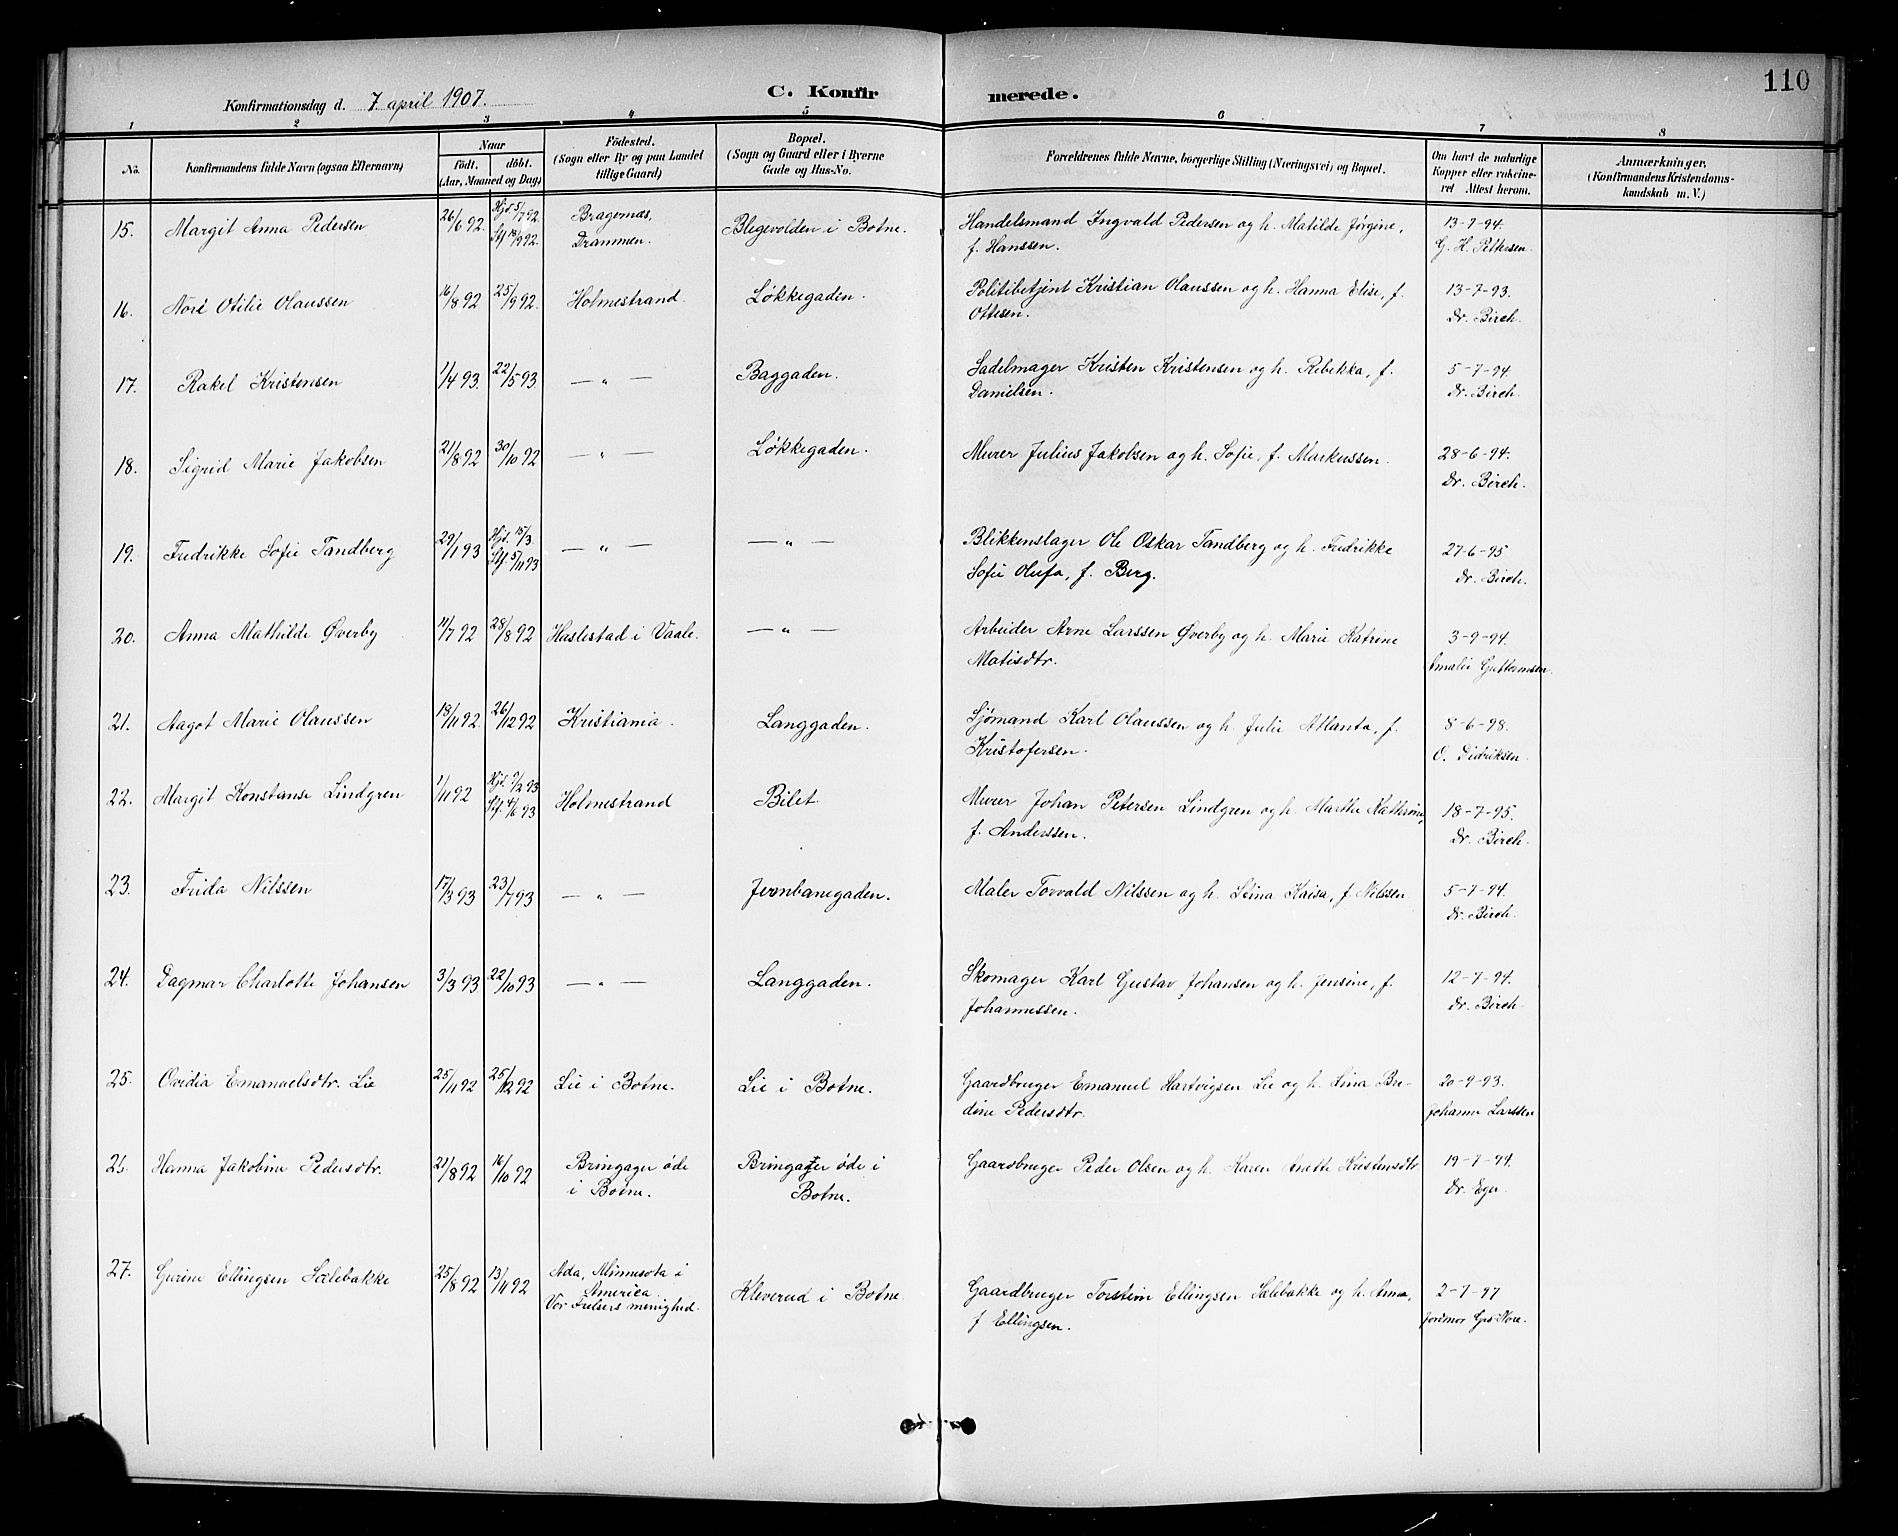 110
Konfirmationsdag d. 7 april 1907.
C. Konfirmerede.
1 2 3 4 5 6 7 8
No. | Konfirmandens fulde Navn (ogsaa Efternavn) | Naar födt. döbt. (Aar, Maaned og Dag) | Födested. (Sogn eller By og paa Landet tillige Gaard) | Bopæl. (Sogn og Gaard eller i Byerne Gade og Hus-No. | Forældrenes fulde Navne, borgerlige Stilling (Næringsvei) og Bopæl. | Om havt de naturlige Kopper eller vakcineret Attest herom. | Anmærkninger, (Konfirmandens Kristendomskundskab m. V.)
15. Margit Anna Pedersen | 26/6 92. | Hjd. 5/7 92. Stf 18/9 92. | Bragernæs, Drammen. | Blegevolden i Botne. | Handelsmand Ingvald Pedersen og h. Matilde Jørgine, f. Hanssen. | 13-7-94. G. H. Pettersen.
16. Nore Otilie Olaussen | 16/8 92 | 25/9 92. | Holmestrand. | Løkkegaden. | Politibetjent Kristian Olaussen og h. Hanna Elise, f. Ottesen. | 13-7-93. Dr. Birch.
17. Rakel Kristensen | 1/4 93. | 22/5 93. | — „ — | Baggaden. | Sadelmager Kristen Kristensen og h. Rebekka, f. Danielsen. | 5-7-94. Dr. Birch.
18. Sigrid Marie Jakobsen | 21/8 92 | 30/10 92 | — „ — | Løkkegaden. | Murer Julius Jakobsen og h. Sofie, f. Markussen. | 28-6-94. Dr. Birch.
19. Fredrikke Sofie Tandberg | 29/1 93 | Hjd. 15/3. Stf. 5/11 93 | — „ — | — „ — | Blikkenslager Ole Oskar Tandberg og h. Fredrikke Sofie Olufa, f. Berg. | 27-6-95 Dr. Birch.
20. Anna Mathilde Øverby | 11/7 92 | 28/8 92 | Haslestad i Vaale. | — „ — | Arbeider Arne Larssen Øverby og h. Marie Katrine Matisdtr. | 3-9-94. Amalie Guttormsen
21. Aagot Marie Olaussen | 18/11 92. | 26/12 92 | Kristiania. | Langgaden. | Sjømand Karl Olaussen og h. Julie Atlanta, f. Kristofersen. | 8-6-98. O. Didriksen.
22. Margit Konstanse Lindgren | 1/11 92 | Hjd. 7/2 93 Stf. 4/6 93 | Holmestrand | Bilet. | Murer Johan Petersen Lindgren og h. Marthe Kathrine, f. Anderssen. | 18-7-95. Dr. Birch.
23. Frida Nilssen | 17/3 93 | 23/7 93 | — „ — | Jernbanegaden. | Maler Torvald Nilssen og h. Stina Kaisa, f. Nilssen | 5-7-94. Dr. Birch.
24. Dagmar Charlotte Johansen | 3/3 93 | 22/10 93 | — „ — | Langgaden. | Skomager Karl Gustav Johansen og h. Jensine, f. Johannessen. | 12-7-94. Dr. Birch.
25. Ovidia Emanuelsdtr. Lie | 25/11 92 | 25/12 92 | Lie i Botne. | Lie i Botne. | Gaardbruger Emanuel Hartvigsen Lie og h. Lina Bredine Pedersdtr. | 20-9-93. Johanne Larssen
26. Hanna Jakobine Pedersdtr. | 21/8 92 | 16/10 92 | Bringager øde i Botne. | Bringager øde i Botne. | Gaardbruger Peder Olsen og h. Karen Anette Kristensdtr | 19-7-94. Dr. Eger.
27. Gurine Ellingsen Sælebakke | 25/8 92 | 13/11 92 | Ada, Minnesota i America. Vor Frelsers menighed. | Kleverud i Botne. | Gaardbruger Torstein Ellingsen Sælebakke og h. Anna, f Ellingsen. | 2-7-97 Jordmor